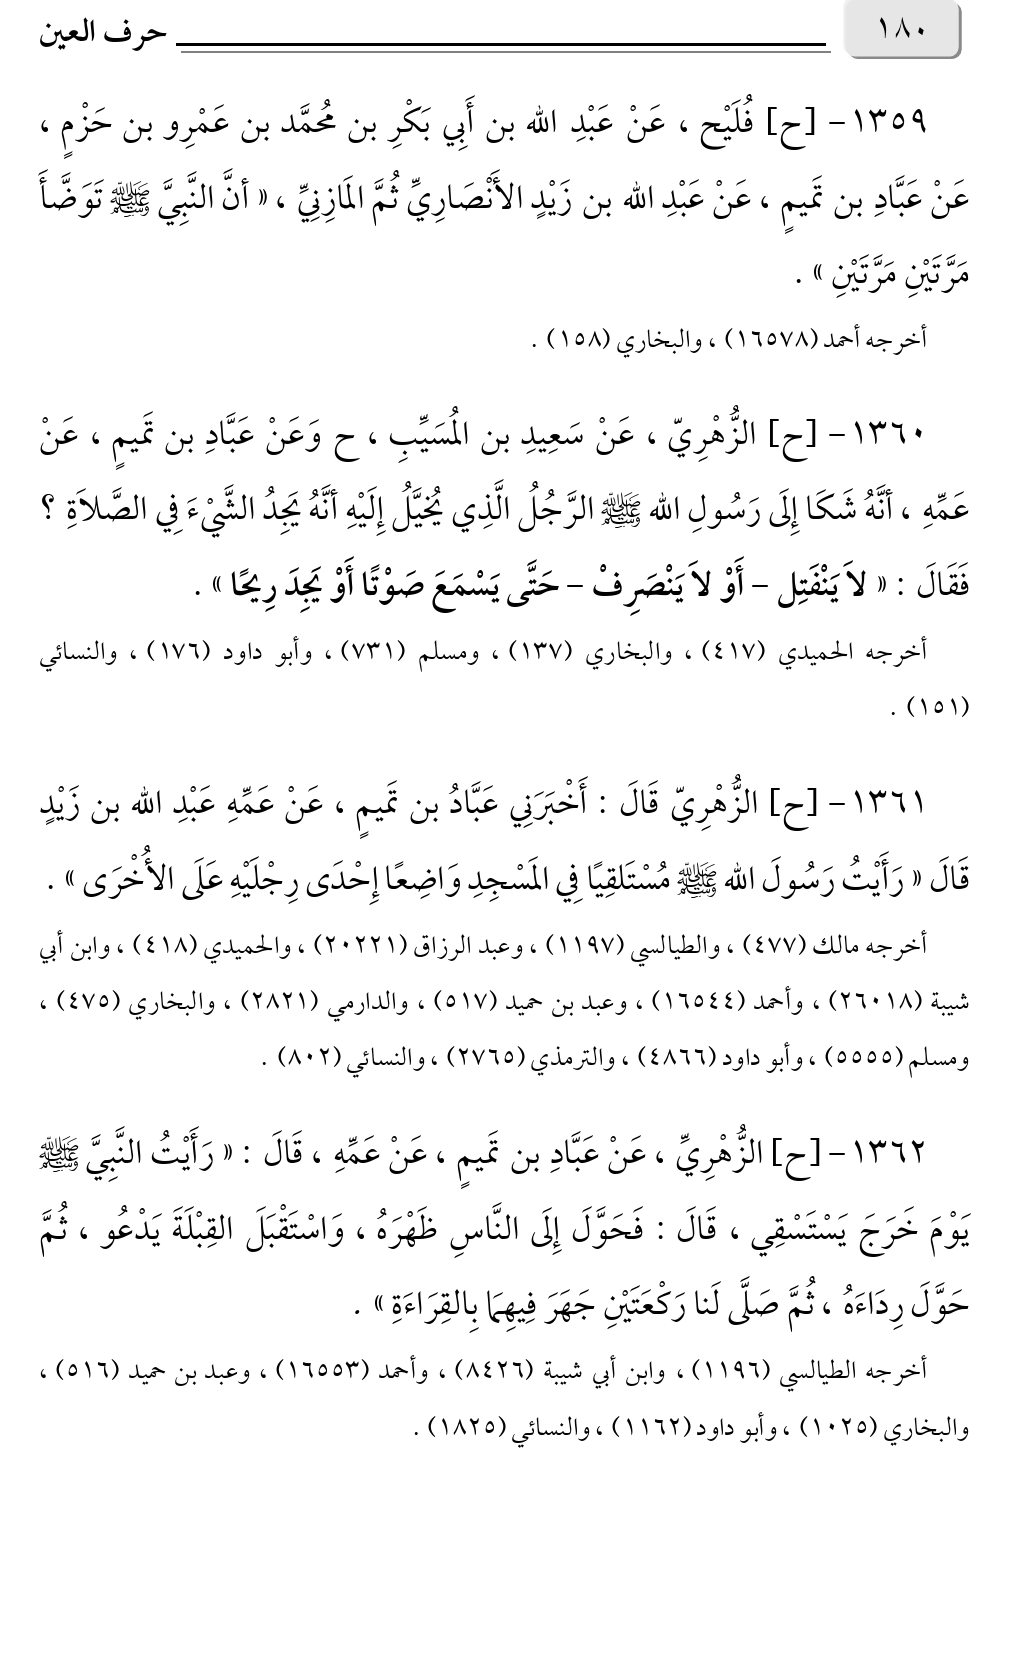 ١٨٠
حرف العين
١٣٥٩- [ح] فُلَيْح ، عَنْ عَبْدِ الله بن أَبِي بَكْرِ بن مُحمَّد بن عَمْرِو بن حَزْمٍ ،
عَنْ عَبَّادِ بن تَميمٍ ، عَنْ عَبْدِ الله بن زَيْدٍ الأَنْصَارِيِّ ثُمَّ المَازِنِيِّ ، « أنَّ النَّبِيَّ ﷺ تَوَضَّأَ
مَرَّتَيْنِ مَرَّتَيْنِ » .
أخرجه أحمد (١٦٥٧٨) ، والبخاري (١٥٨) .
١٣٦٠- [ح] الزُّهْرِيّ ، عَنْ سَعِيدِ بن المُسَيِّبِ ، ح وَعَنْ عَبَّادِ بن تَميمٍ ، عَنْ
عَمِّهِ ، أنَّهُ شَكَا إِلَى رَسُولِ الله ﷺ الرَّجُلُ الَّذِي يُخيَّلُ إِلَيْهِ أنَّهُ يَجِدُ الشَّيْءَ فِي الصَّلاَةِ ؟
فَقَالَ : « لاَ يَنْفَتِل – أَوْ لاَ يَنْصَرِفْ – حَتَّى يَسْمَعَ صَوْتًا أَوْ يَجِدَ رِيحًا » .
أخرجه الحميدي (٤١٧) ، والبخاري (١٣٧) ، ومسلم (٧٣١) ، وأبو داود (١٧٦) ، والنسائي
(١٥١) .
١٣٦١- [ح] الزُّهْرِيّ قَالَ : أَخْبَرَنِي عَبَّادُ بن تَميمٍ ، عَنْ عَمِّهِ عَبْدِ الله بن زَيْدٍ
قَالَ « رَأَيْتُ رَسُولَ الله ﷺ مُسْتَلقِيًا فِي المَسْجِدِ وَاضِعًا إِحْدَى رِجْلَيْهِ عَلَى الأُخْرَى » .
أخرجه مالك (٤٧٧) ، والطيالسي (١١٩٧) ، وعبد الرزاق (٢٠٢٢١) ، والحميدي (٤١٨) ، وابن أبي
شيبة (٢٦٠١٨) ، وأحمد (١٦٥٤٤) ، وعبد بن حميد (٥١٧) ، والدارمي (٢٨٢١) ، والبخاري (٤٧٥) ،
ومسلم (٥٥٥٥) ، وأبو داود (٤٨٦٦) ، والترمذي (٢٧٦٥) ، والنسائي (٨٠٢) .
١٣٦٢- [ح] الزُّهْرِيِّ ، عَنْ عَبَّادِ بن تَميمٍ ، عَنْ عَمِّهِ ، قَالَ : « رَأَيْتُ النَّبِيَّ ﷺ
يَوْمَ خَرَجَ يَسْتَسْقِي ، قَالَ : فَحَوَّلَ إِلَى النَّاسِ ظَهْرَهُ ، وَاسْتَقْبَلَ القِبْلَةَ يَدْعُو ، ثُمَّ
حَوَّلَ رِدَاءَهُ ، ثُمَّ صَلَّى لَنا رَكْعَتَيْنِ جَهَرَ فِيهِمَا بِالقِرَاءَةِ » .
أخرجه الطيالسي (١١٩٦) ، وابن أبي شيبة (٨٤٢٦) ، وأحمد (١٦٥٥٣) ، وعبد بن حميد (٥١٦) ،
والبخاري (١٠٢٥) ، وأبو داود (١١٦٢) ، والنسائي (١٨٢٥) .